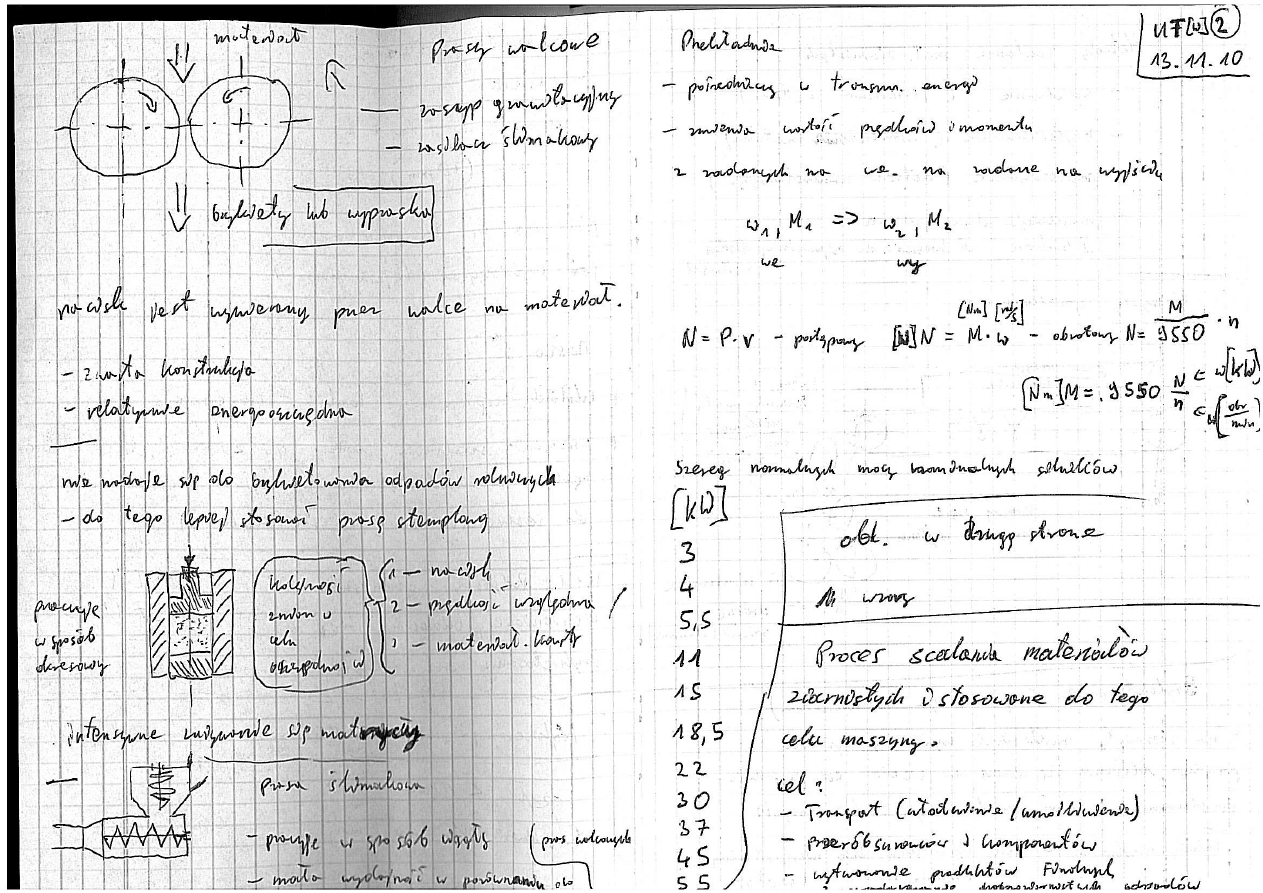 materiał
Prasy walcowe
— zasyp grawitacyjny
— zasilacz ślimakowy
brykiety lub wypraska
nacisk jest wywierany przez walce na materiał.
- zwarta konstrukcja
- relatywnie energooszczędna
nie nadaje się do brykietowania odpadów rolniczych
- do tego lepiej stosować prasę stemplową
pracuje
w sposób
okresowy
kolejność
zmian w
celu
oszczędności
1 — nacisk
2 - prędkość względna
- materiał.
intensywne zużywanie się matrycy
prasa ślimakowa
- pracuje w sposób ciągły
(pras walcowych
- mała wydajność w porównaniu do
UT[W] 2
13.11.10
Przekładnia
- pośredniczy w transm. energii
- zmienia wartość prędkości i momentu
z zadanych na we. na zadane na wyjściu
ω1, M1 => ω2, M2
we wy
[Nm] [rad/s]
N = P·v - postępowy [W] N = M·ω - obrotowy N = M/9550 · n
[Nm] M = 9550 N/n ← w [kW]
← w [obr/min]
Szereg normalnych mocy nominalnych silników
[kW]
3
4
5,5
11
15
18,5
22
30
37
45
55
obk. w drugą stronę
wzory
Proces scalania materiałów
ziarnistych i stosowane do tego
celu maszyny.
cel:
- Transport (ułatwienie / umożliwienie)
- przerób surowców i komponentów
- wytworzenie produktów finalnych